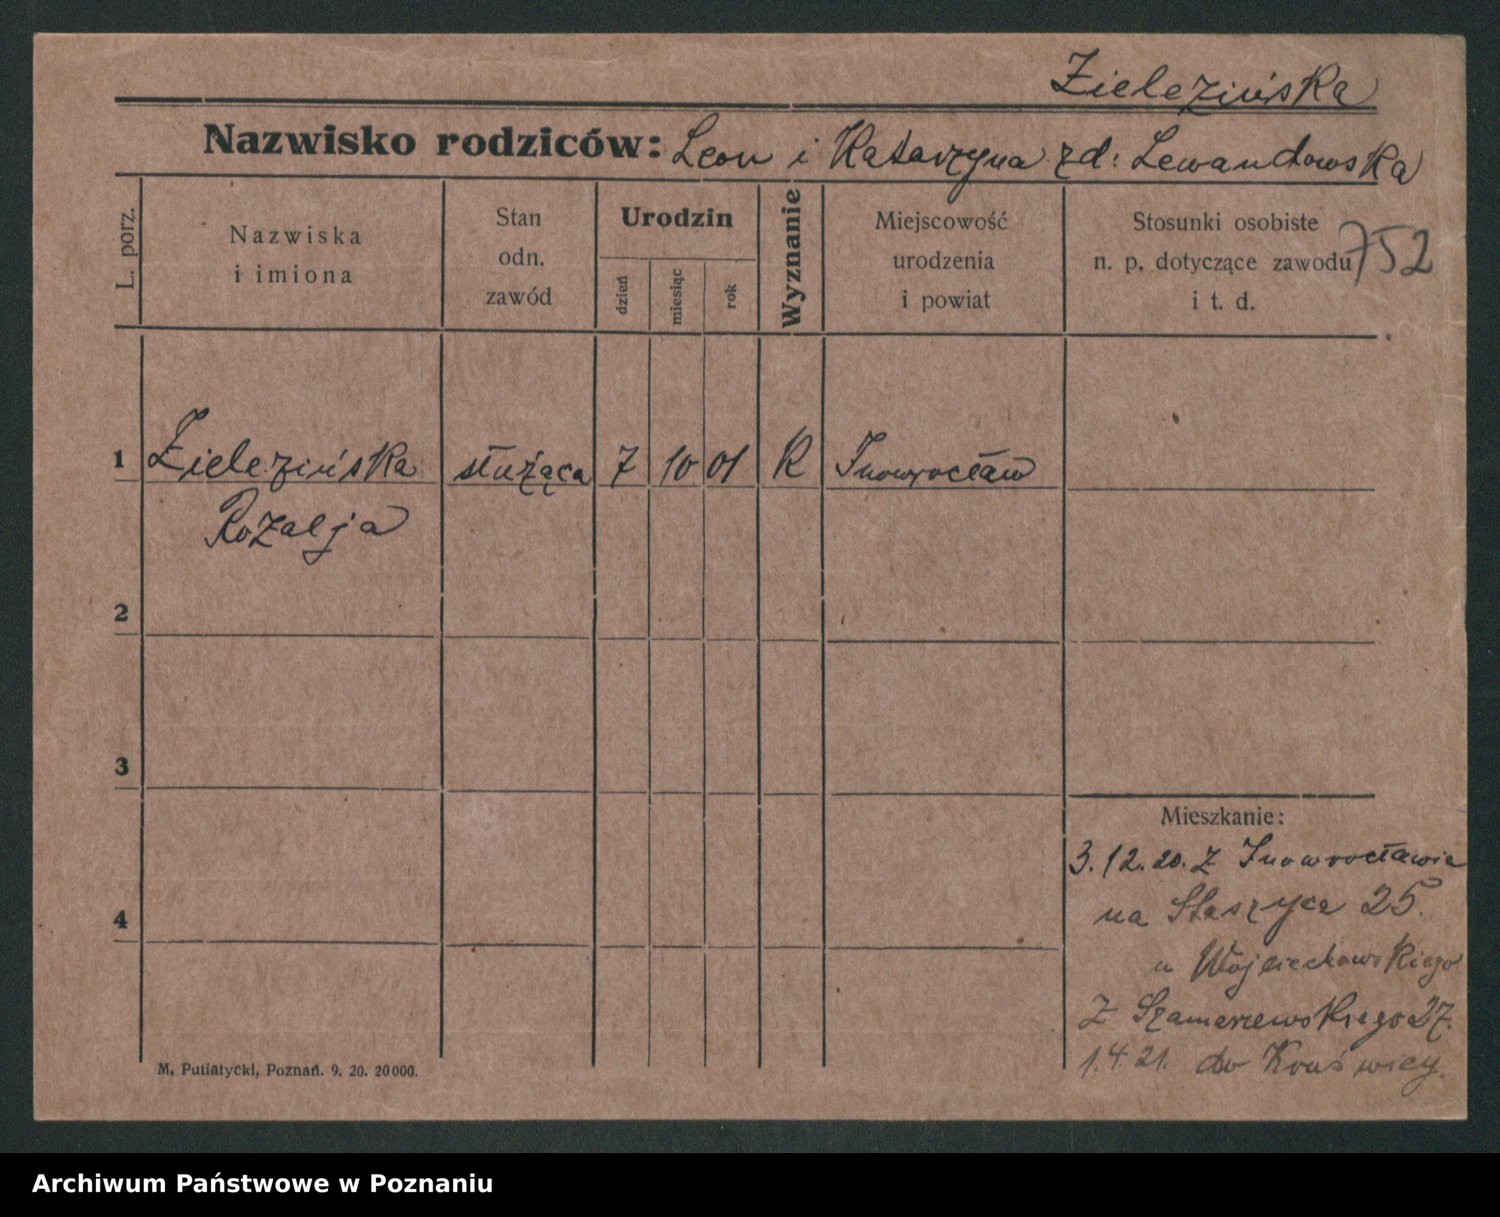 Zielezińska
Nazwisko rodziców: Leon i Katarzyna zd: Lewandowska
L. porz.
Nazwiska
i imiona
Stan
odn.
zawód
Urodzin
dzień
miesiąc
rok
Wyznanie
Miejscowość
urodzenia
i powiat
Stosunki osobiste
n. p. dotyczące zawodu
i t. d.
752
1 Zielezińska służąca 7 10 01 R Inowrocław
Rozalja
2
3
4
Mieszkanie:
3.12.20. z Inowrocławia
na Staszyca 25.
u Wojciechowskiego
z Szamarzewskiego 27.
1.4.21. do Kruświcy.
M. Putiatycki, Poznań. 9. 20. 20000.
Archiwum Państwowe w Poznaniu